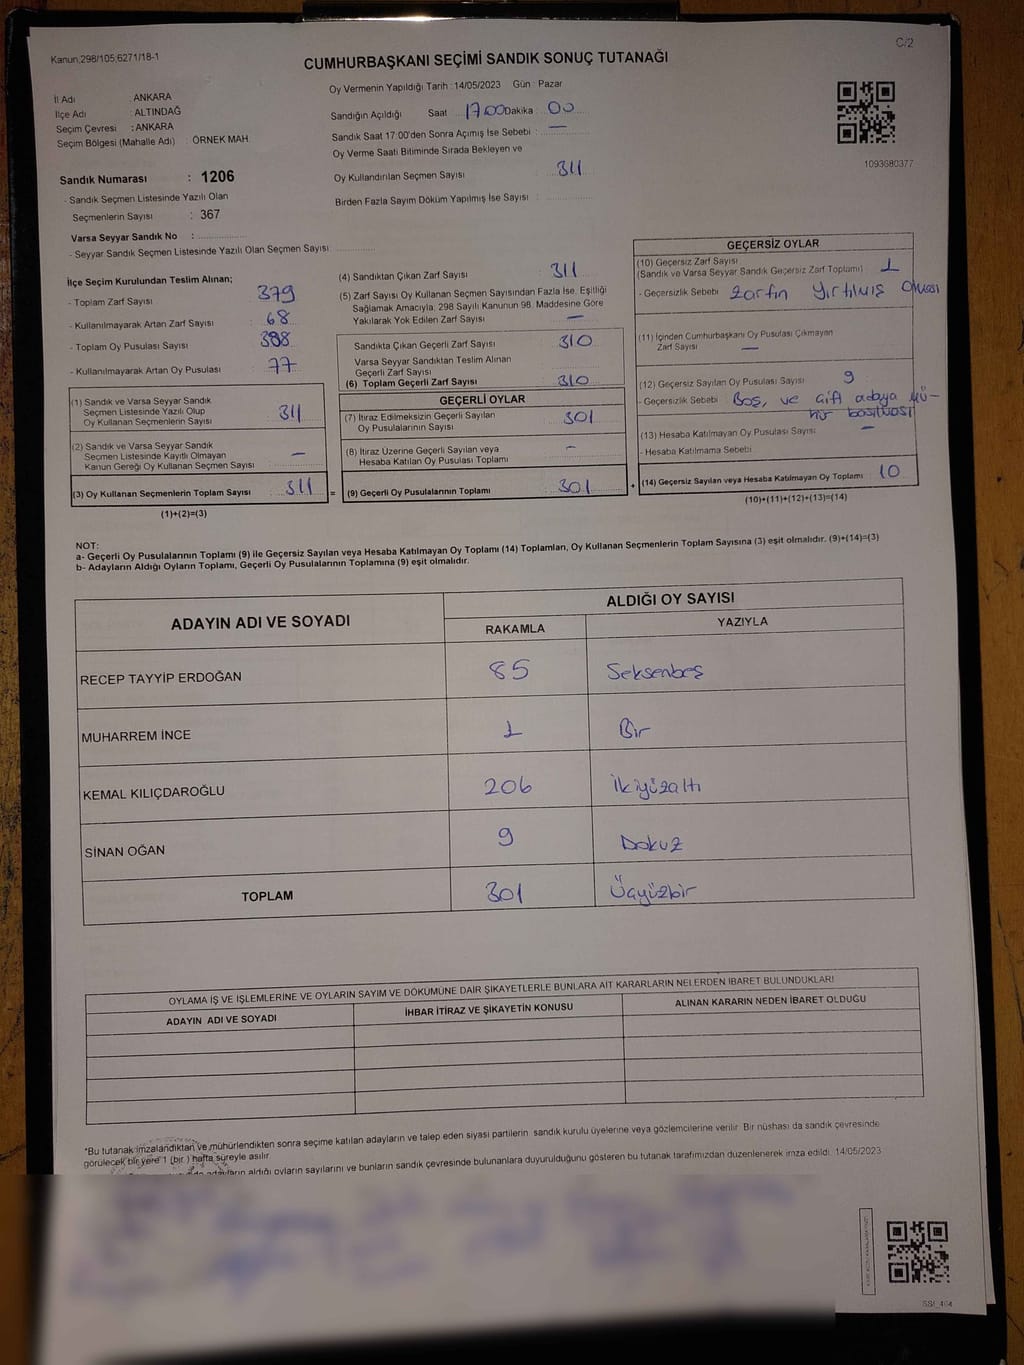 Kanun;298/105;6271/18-1
C/2
CUMHURBAŞKANI SEÇİMİ SANDIK SONUÇ TUTANAĞI
Oy Vermenin Yapıldığı Tarih : 14/05/2023 Gün : Pazar
İl Adı : ANKARA
İlçe Adı : ALTINDAĞ
Seçim Çevresi : ANKARA
Seçim Bölgesi (Mahalle Adı) : ÖRNEK MAH.
Sandık Numarası : 1206
- Sandık Seçmen Listesinde Yazılı Olan
Seçmenlerin Sayısı : 367
Varsa Seyyar Sandık No :
- Seyyar Sandık Seçmen Listesinde Yazılı Olan Seçmen Sayısı:
Sandığın Açıldığı Saat 17.00 Dakika 00
Sandık Saat 17:00'den Sonra Açımış İse Sebebi : —
Oy Verme Saati Bitiminde Sırada Bekleyen ve
Oy Kullandırılan Seçmen Sayısı : 311
Birden Fazla Sayım Döküm Yapılmış İse Sayısı :
1093680377
İlçe Seçim Kurulundan Teslim Alınan;
- Toplam Zarf Sayısı : 379
- Kullanılmayarak Artan Zarf Sayısı : 68
- Toplam Oy Pusulası Sayısı : 388
- Kullanılmayarak Artan Oy Pusulası : 77
(1) Sandık ve Varsa Seyyar Sandık
Seçmen Listesinde Yazılı Olup
Oy Kullanan Seçmenlerin Sayısı : 311
(2) Sandık ve Varsa Seyyar Sandık
Seçmen Listesinde Kayıtlı Olmayan
Kanun Gereği Oy Kullanan Seçmen Sayısı : —
(3) Oy Kullanan Seçmenlerin Toplam Sayısı : 311 =
(1)+(2)=(3)
(4) Sandıktan Çıkan Zarf Sayısı : 311
(5) Zarf Sayısı Oy Kullanan Seçmen Sayısından Fazla İse, Eşitliği
Sağlamak Amacıyla; 298 Sayılı Kanunun 98. Maddesine Göre
Yakılarak Yok Edilen Zarf Sayısı : —
Sandıkta Çıkan Geçerli Zarf Sayısı : 310
Varsa Seyyar Sandıktan Teslim Alınan
Geçerli Zarf Sayısı :
(6) Toplam Geçerli Zarf Sayısı : 310
GEÇERLİ OYLAR
(7) İtiraz Edilmeksizin Geçerli Sayılan
Oy Pusulalarının Sayısı : 301
(8) İtiraz Üzerine Geçerli Sayılan veya
Hesaba Katılan Oy Pusulası Toplamı : —
(9) Geçerli Oy Pusulalarının Toplamı : 301 +
GEÇERSİZ OYLAR
(10) Geçersiz Zarf Sayısı
(Sandık ve Varsa Seyyar Sandık Geçersiz Zarf Toplamı) : 1
- Geçersizlik Sebebi : Zarfın Yırtılmış Olması
(11) İçinden Cumhurbaşkanı Oy Pusulası Çıkmayan
Zarf Sayısı : —
(12) Geçersiz Sayılan Oy Pusulası Sayısı : 9
- Geçersizlik Sebebi : Boş, ve çift adaya mü-
hür basılması
(13) Hesaba Katılmayan Oy Pusulası Sayısı : —
- Hesaba Katılmama Sebebi :
(14) Geçersiz Sayılan veya Hesaba Katılmayan Oy Toplamı : 10
(10)+(11)+(12)+(13)=(14)
NOT:
a- Geçerli Oy Pusulalarının Toplamı (9) ile Geçersiz Sayılan veya Hesaba Katılmayan Oy Toplamı (14) Toplamları, Oy Kullanan Seçmenlerin Toplam Sayısına (3) eşit olmalıdır. (9)+(14)=(3)
b- Adayların Aldığı Oyların Toplamı, Geçerli Oy Pusulalarının Toplamına (9) eşit olmalıdır.
ADAYIN ADI VE SOYADI ALDIĞI OY SAYISI
RAKAMLA YAZIYLA
RECEP TAYYİP ERDOĞAN 85 Seksenbeş
MUHARREM İNCE 1 Bir
KEMAL KILIÇDAROĞLU 206 İkiyüzaltı
SİNAN OĞAN 9 Dokuz
TOPLAM 301 Üçyüzbir
OYLAMA İŞ VE İŞLEMLERİNE VE OYLARIN SAYIM VE DÖKÜMÜNE DAİR ŞİKAYETLERLE BUNLARA AİT KARARLARIN NELERDEN İBARET BULUNDUKLARI
ADAYIN ADI VE SOYADI İHBAR İTİRAZ VE ŞİKAYETİN KONUSU ALINAN KARARIN NEDEN İBARET OLDUĞU
*Bu tutanak imzalandıktan ve mühürlendikten sonra seçime katılan adayların ve talep eden siyasi partilerin sandık kurulu üyelerine veya gözlemcilerine verilir. Bir nüshası da sandık çevresinde
görülecek bir yere 1 (bir ) hafta süreyle asılır.
adayların aldığı oyların sayılarını ve bunların sandık çevresinde bulunanlara duyurulduğunu gösteren bu tutanak tarafımızdan düzenlenerek imza edildi. 14/05/2023